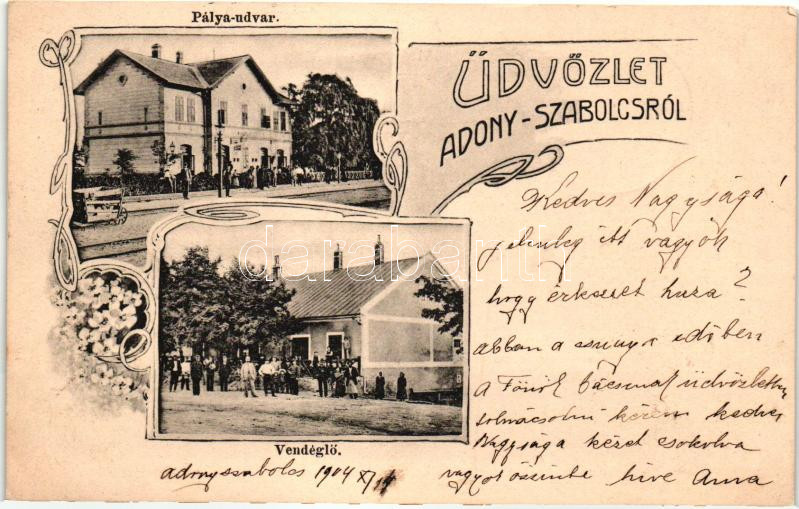 Pálya-udvar.
ÜDVŐZLET
ADONY-SZABOLCSRÓL
Kedves Nagysága!
jelenleg itt vagyok
hogy érkezet haza?
abban a csunya időben
a Főnök bácsinak üdvözletem
tolmácsolni kérem kedves
Nagysága kézet csokolva
vagyok őszinte hive Anna
Vendéglő.
adonyszabolcs 1904 XI/14
darabanth